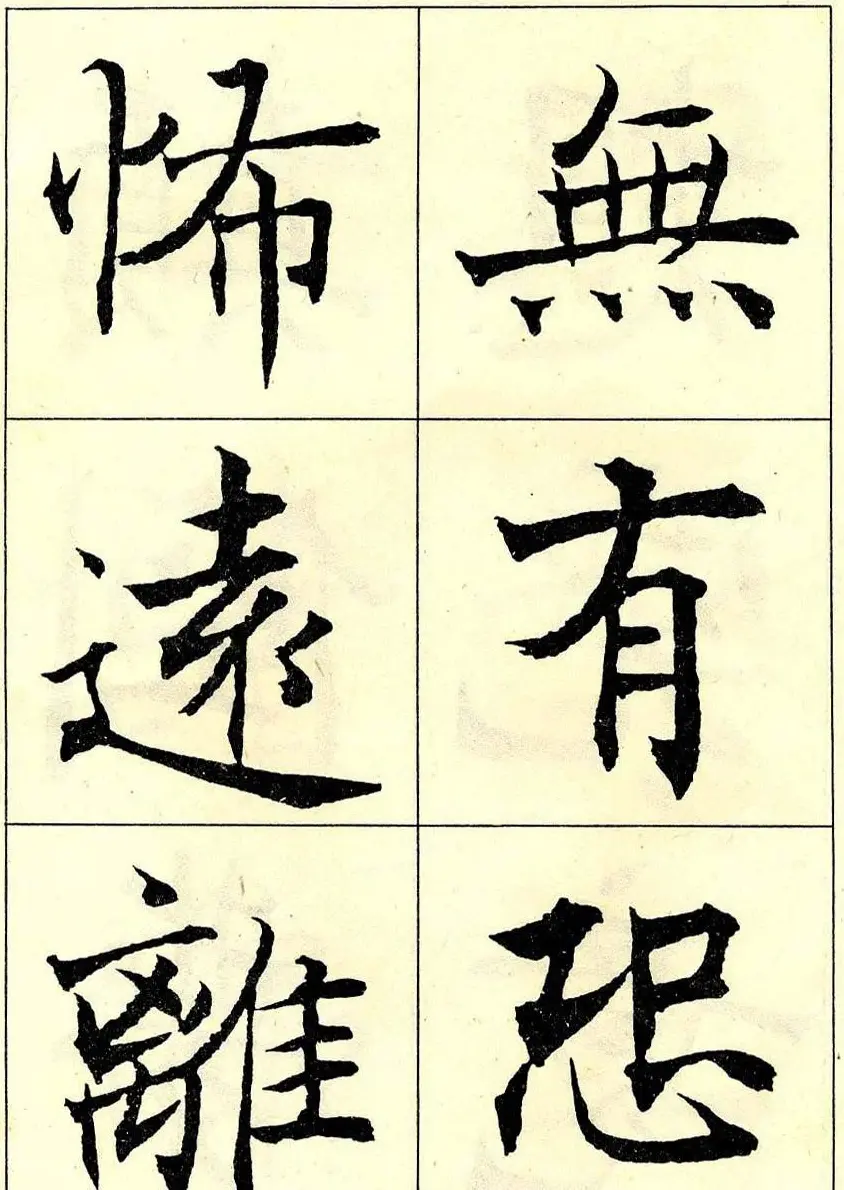 無有恐
怖遠離